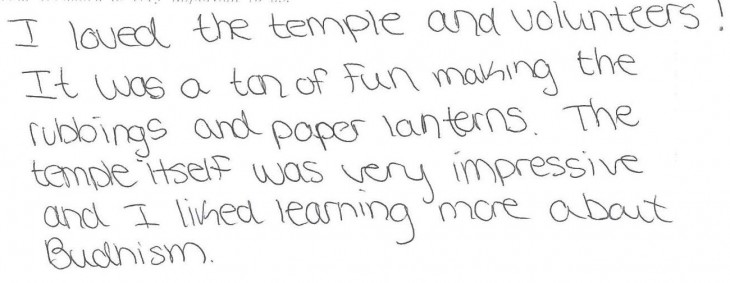 I loved the temple and volunteers!
It was a ton of fun making the
rubbings and paper lanterns. The
temple itself was very impressive
and I liked learning more about
Budhism.